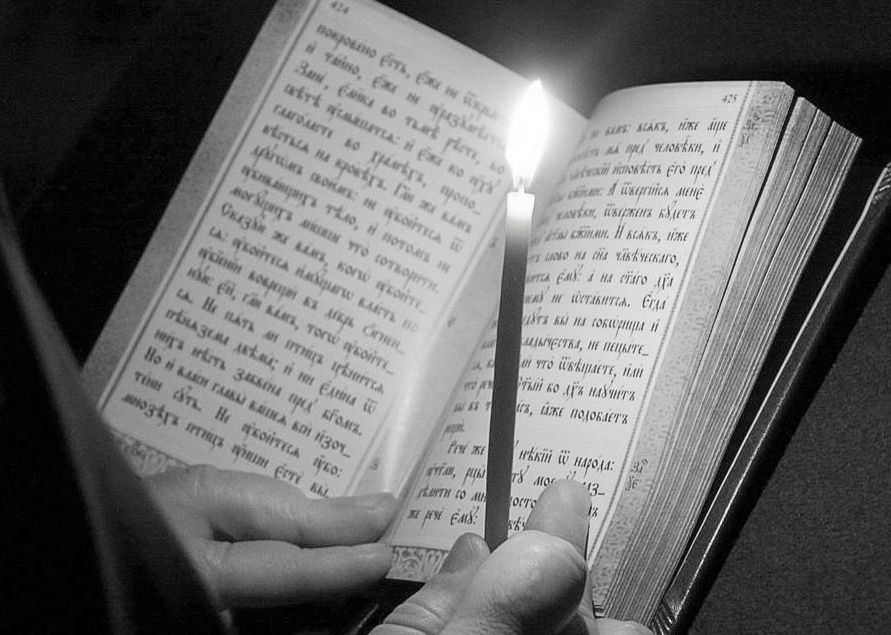 424
покрове́но є҆́сть, є҆́же не ѿкры́
и҆ та́йно, є҆́же не ᲂу҆разꙋмѣ́етсѧ
Занѐ, є҆ли̑ка во тьмѣ̀ рѣ́сте, во
свѣ́тѣ ᲂу҆слы́шатсѧ: и҆ є҆́же ко ᲂу҆́хꙋ
глаго́ласте во хра́мѣхъ, пропо_
вѣ́стсѧ на кро́вѣхъ. Гл҃ю же ва́мъ
дрꙋгѡ́мъ свои̑мъ: не ᲂу҆бо́йтесѧ ѿ
ᲂу҆бива́ющихъ тѣ́ло, и҆ пото́мъ не
могꙋ́щихъ ли́шши что̀ сотвори́ти.
Сказꙋ́ю же ва́мъ, когѡ̀ ᲂу҆бо́йте_
сѧ: ᲂу҆бо́йтесѧ и҆мꙋ́щагѡ вла́сть по
ᲂу҆бїе́нїи воврещѝ въ де́брь ѻ҆́гнен_
нꙋю: є҆́й, гл҃ю ва́мъ, тогѡ̀ ᲂу҆бо́йте_
сѧ. Не пѧ́ть ли пти́цъ цѣни́тсѧ
пѣ́нѧзема двѣма̀; и҆ ни є҆ди́на ѿ
ни́хъ нѣ́сть забве́на пред̾ бг҃омъ.
Но и҆ власѝ главы̀ ва́шеѧ всѝ и҆зоч_
те́ни сꙋ́ть. Не ᲂу҆бо́йтесѧ ᲂу҆̀бо:
мно́зѣхъ пти́цъ ᲂу҆́нши є҆стѐ вы̀.
425
ва́мъ: всѧ́къ, и҆́же а҆́ще
мѧ̀ пред̾ человѣ̑ки, и҆
человѣ́ческїй и҆сповѣ́сть є҆го̀ пред̾
бж҃їими: А҆ ѿве́ргійсѧ менє̀
человѣ̑ки, ѿве́рженъ бꙋ́детъ
бж҃їими. И҆ всѧ́къ, и҆́же
сло́во на сн҃а чл҃вѣ́ческаго,
є҆мꙋ̀: а҆ на ст҃а́го дх҃а
не ѡ҆ста́витсѧ. Є҆гда̀
вы̀ на собѡ́рища и҆
влады́чества, не пецы́те_
и҆лѝ что̀ ѿвѣща́ете, и҆лѝ
ст҃ы́й бо дх҃ъ наꙋчи́тъ
вы̀ въ то́й ча́съ, ꙗ҆̀же подоба́етъ
Рече́ же нѣ́кїй ѿ наро́да:
ᲂу҆чт҃лю, рцы̀ моемꙋ̀ и҆з_
дѣли́ти со мно́ю
же речѐ є҆мꙋ̀: